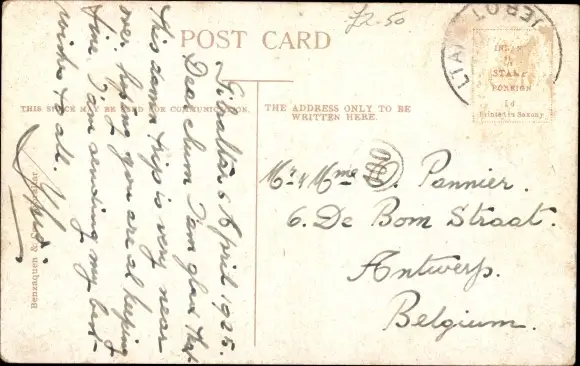 £2-50
POST CARD
THIS SPACE MAY BE USED FOR COMMUNICATION.
THE ADDRESS ONLY TO BE
WRITTEN HERE.
INLAND
STAMP
FOREIGN
1d
Printed in Saxony
Gibraltar 6 April 1925.
Dear chum I am glad that
this damn trip is very near
over, hoping you are al keeping
fine I am sending my best
wishes to all.
Mr & Mme O. Pannier.
6. De Bom Straat.
Antwerp.
Belgium.
Benzaquen & Co., Gibraltar